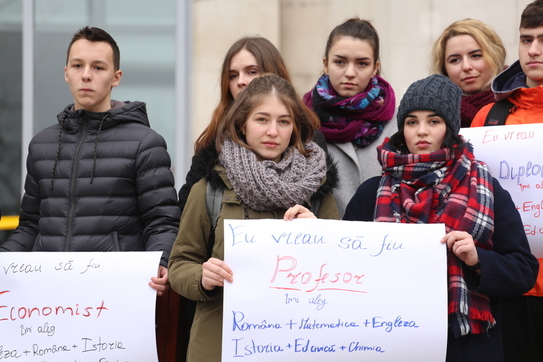 vreau să fiu
Economist
îmi aleg
leza + Româna + Istoria +
Eu vreau să fiu
Profesor
îmi aleg
Româna + Matematica + Engleza
Istoria + Ed.civică + Chimia
vreau să fiu
Diplom